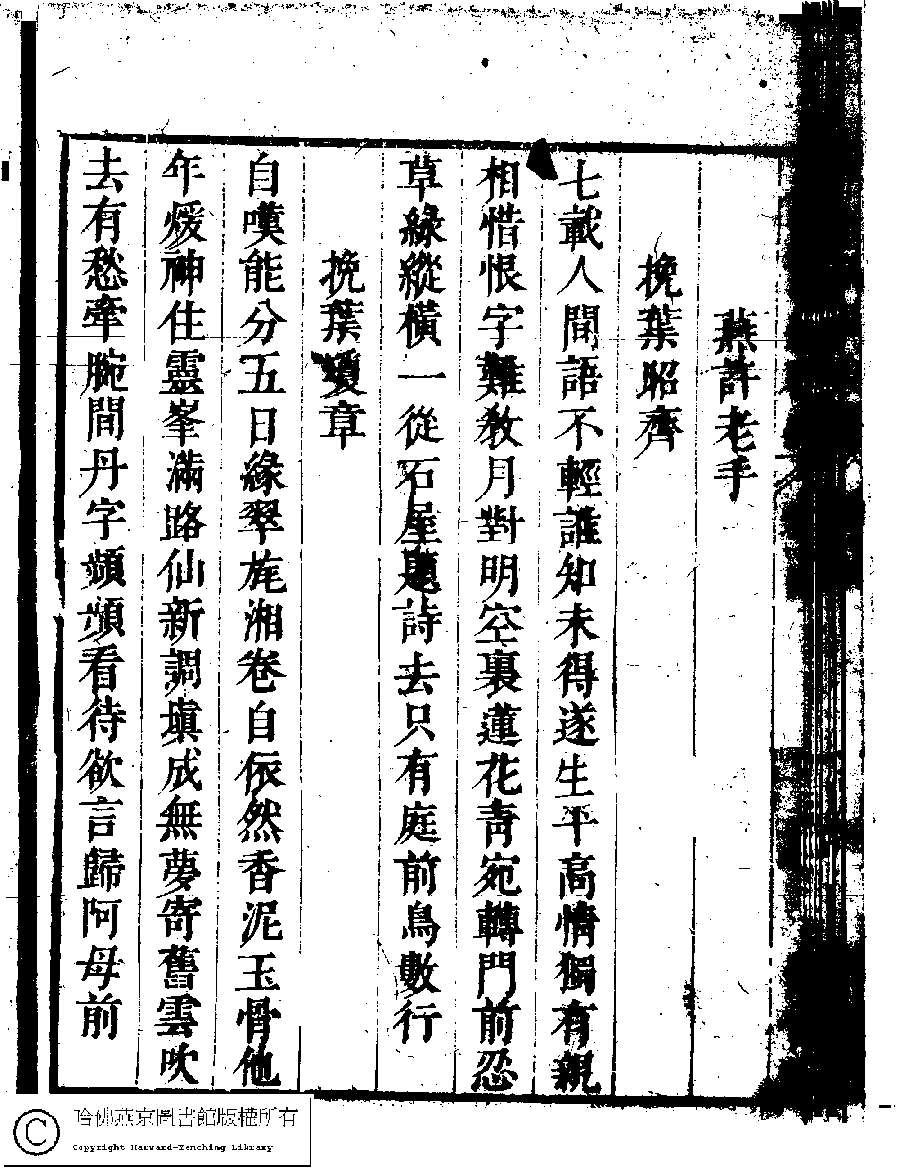 燕許老手
挽葉昭齊
七載人間語不輕誰知未得遂生平高情獨有親
相惜恨字難教月對明空裏蓮花青宛轉門前忍
草綠縱橫一從石屋題詩去只有庭前鳥數行
挽葉瓊章
自嘆能分五日緣翠旄湘卷自依然香泥玉骨他
年煖神住靈峯滿路仙新調填成無夢寄舊雲吹
去有愁牽腕間丹字頻頻看待欲言歸阿母前
哈佛燕京圖書館版權所有
Copyright Harvard-Yenching Library